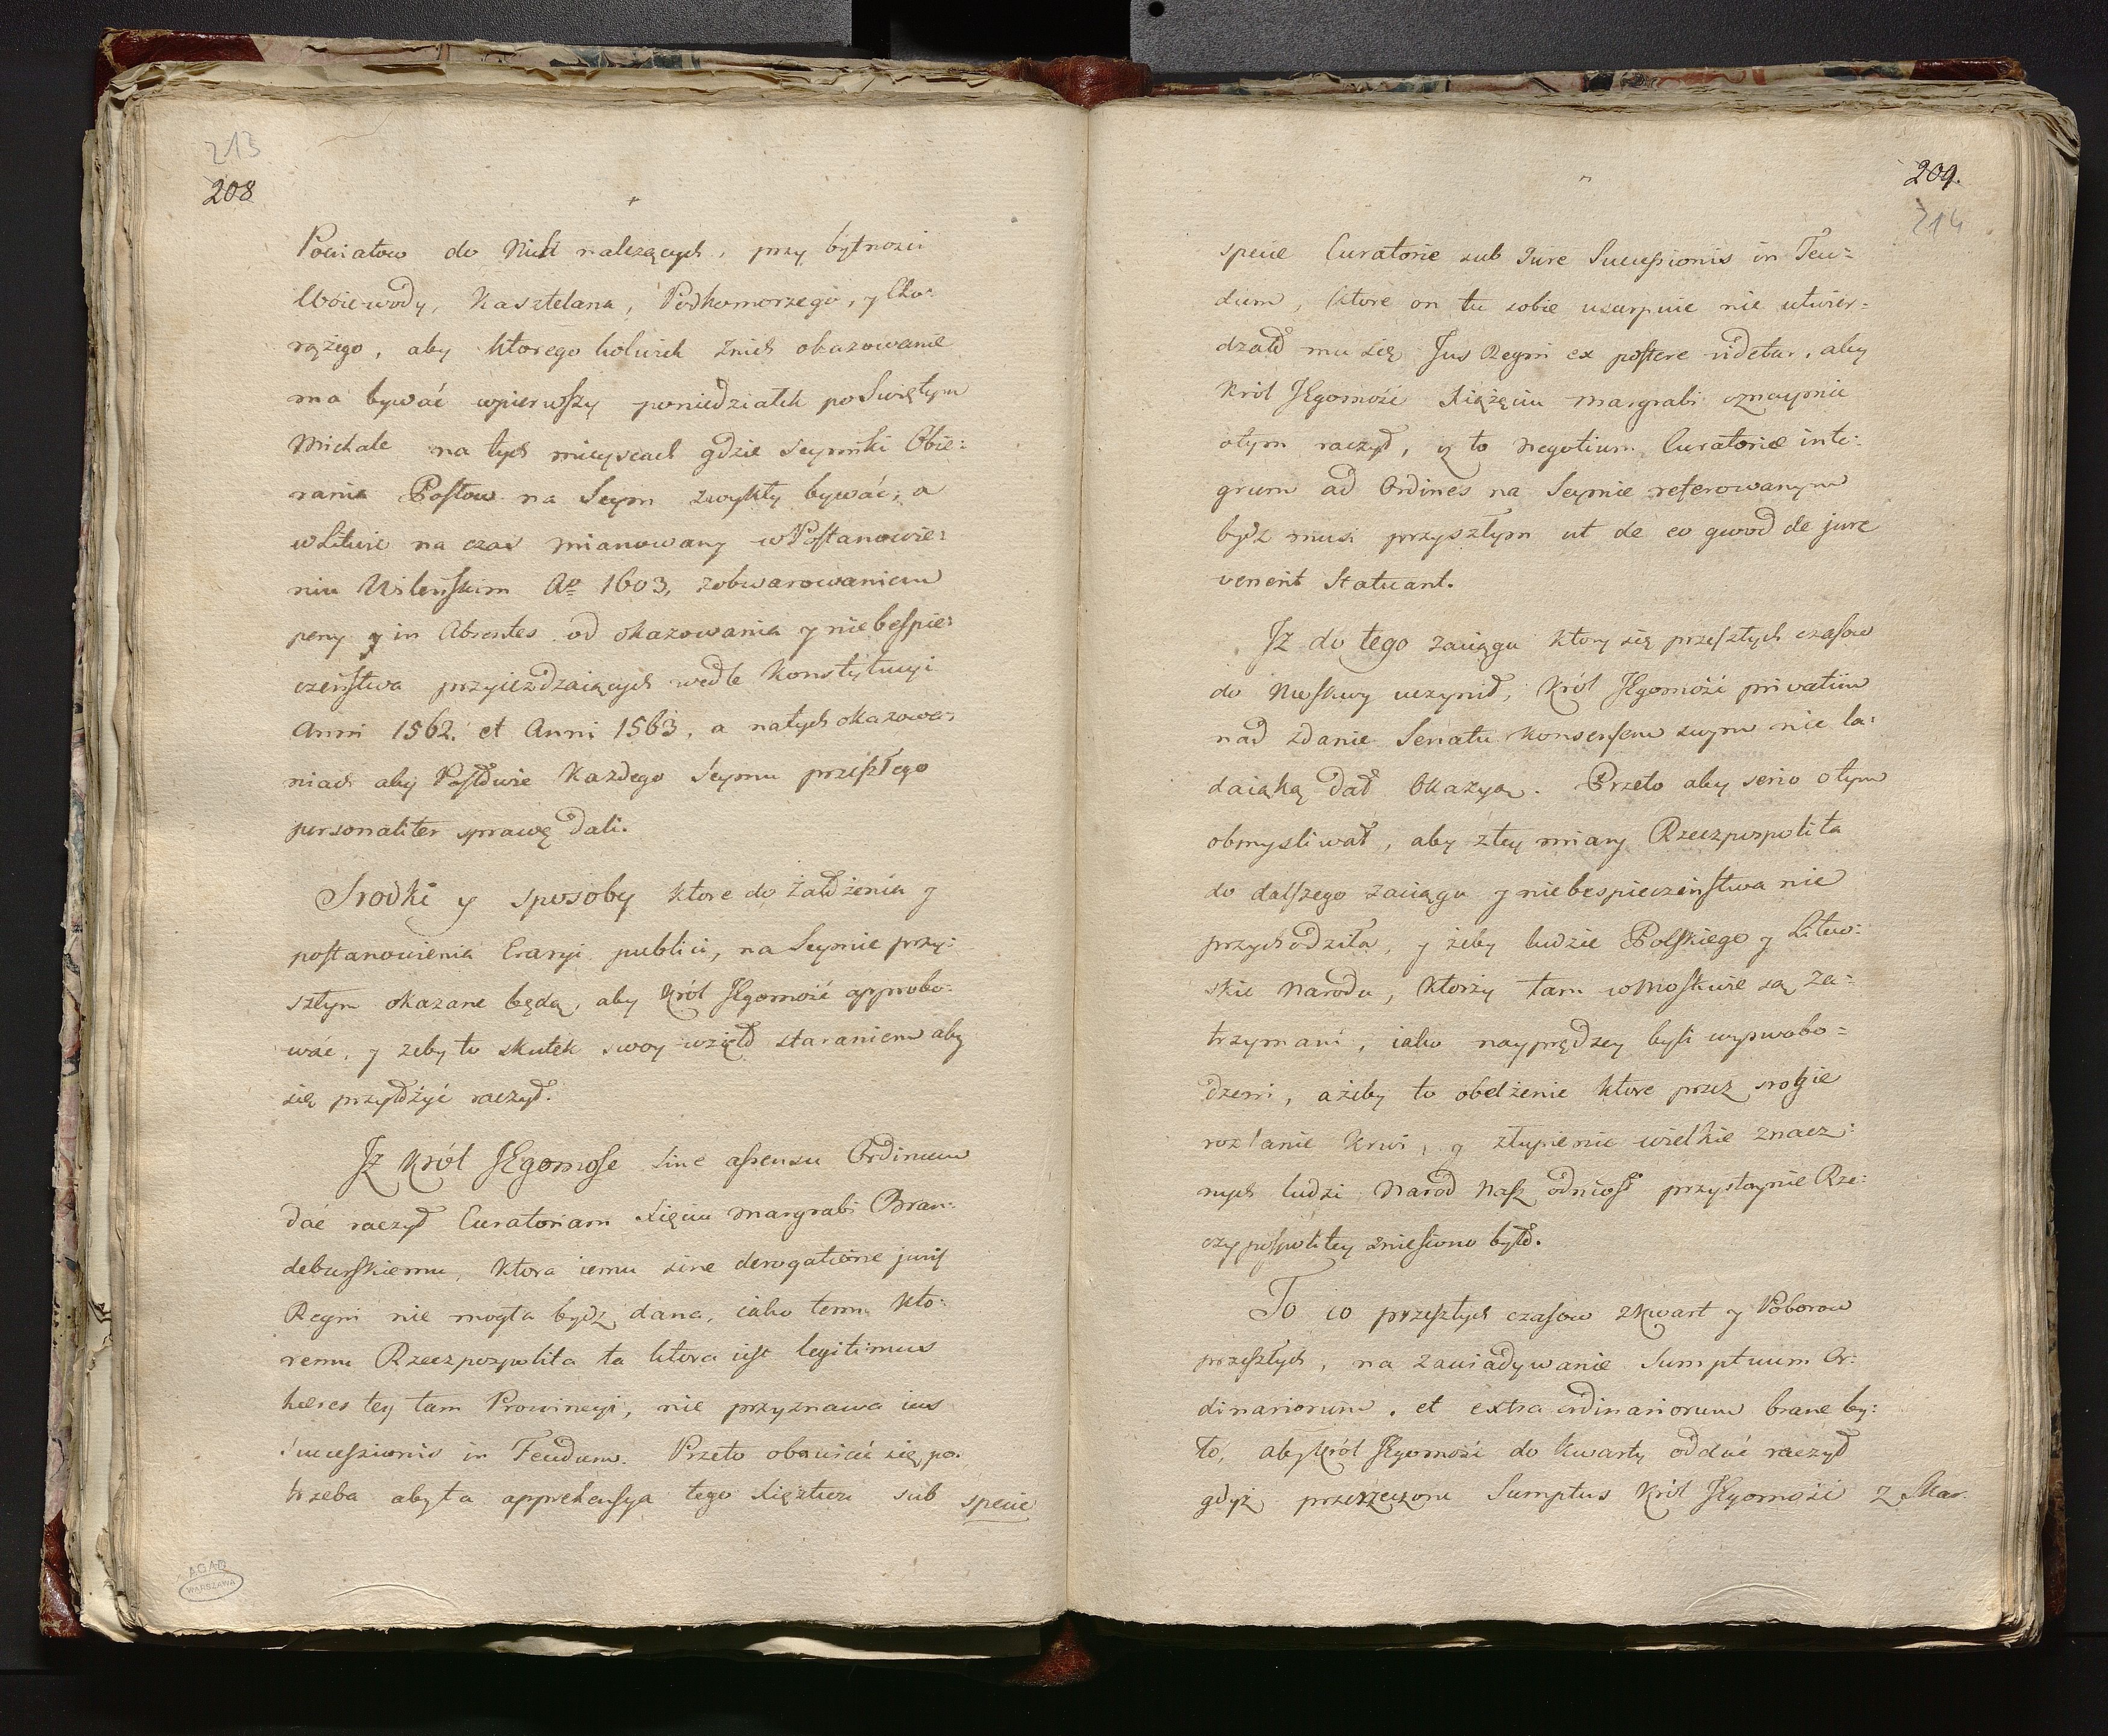 213
208
Powiatow do Nich nalezących, przy bytnosci
Woiewody, Kasztelana, Podkomorzego, y Cho:
rążego, aby ktorego kolwiek znich okazowanie
ma bywać wpierwszy poniedziałek po Swiętym
Michale na tych mieyscach gdzie Seymiki Obie:
rania Posłow na Seym zwykły bywać, a
w Litwie na czas mianowany w Postanowie:
niu Wileńskim Ao 1603, zobwarowaniem
peny y in Absentes od okazowania y niebespie:
czeństwa przyiezdzaiących wedle Konstytucyi
Anni 1562. et Anni 1563, a natych okazowa:
niach aby Posłowie Każdego Seymu przeszłego
personaliter sprawę dali.
Srodki y sposoby ktore do założenia y
postanowienia Eraryi publici, na Seymie przy:
szłym okazane będą, aby Król JEgomość approbo:
wać, y zeby to skutek swoy wzięło staraniem aby
się przyłożyć raczył.
Jż Król JEgomośc sine assensu Ordinum
dać raczył Curatoriam Xięciu Margrabi Bran:
deburskiemu, Ktora iemu sine derogatione juris
Regni nie mogła bydź dana, iako temu kto:
remu Rzeczpospolita ta ktora iest legitimus
heres tey tam Prowincyi, nie przyznawa ius
Successionis in Feudum. Przeto obawiać się po:
trzeba aby ta apprehensya tego Xięztwa sub
specie
AGAD
WARSZAWA
209.
214
specie Curatorie sub Jure Successionis in Feu:
dum, ktore on tu sobie usurpuie nie utwier:
dzało mu się Jus Regni ex postere videtur, aby
Król JEgomość Xiążęciu Margrabi oznaymić
otym raczył, iż to Negotium Curatoriæ inte:
grum ad Ordines na Seymie referowanym
bydź musi przyszłym ut de eo quod de jure
venerit Statuant.
Jż do tego zaciągu ktory się przeszłych czasow
do Moskwy uczynił, Król JEgomość privatim
nad zdanie Senatu Konsensem swym nie la:
daiaką dał Okazyą. Przeto aby serio otym
obmysliwał, aby ztey miary Rzeczpospolita
do dalszego zaciągu y niebespieczeństwa nie
przychodziła, y żeby ludzie Polskiego y Litew:
skie Narodu, Ktorzy tam w Moskwie są za:
trzymani, iako nayprędzey byli wyswobo:
dzeni, a żeby to obelżenie ktore przez srogie
rozlanie krwi, y złupienie wielkie znacz:
nych ludzi Narod Nasz odniosł przystoynie Rze:
czypospolitey zniesiono było.
To co przeszłych czasow z Kwart y Poborow
przeszłych, na zawiadywanie Sumptuum Or:
dinariorum, et extra ordinariorum brane by:
ło, aby Król JEgomość do Kwarty oddać raczył
gdyż przerzeczone Sumptus Król JEgomość z Skar.